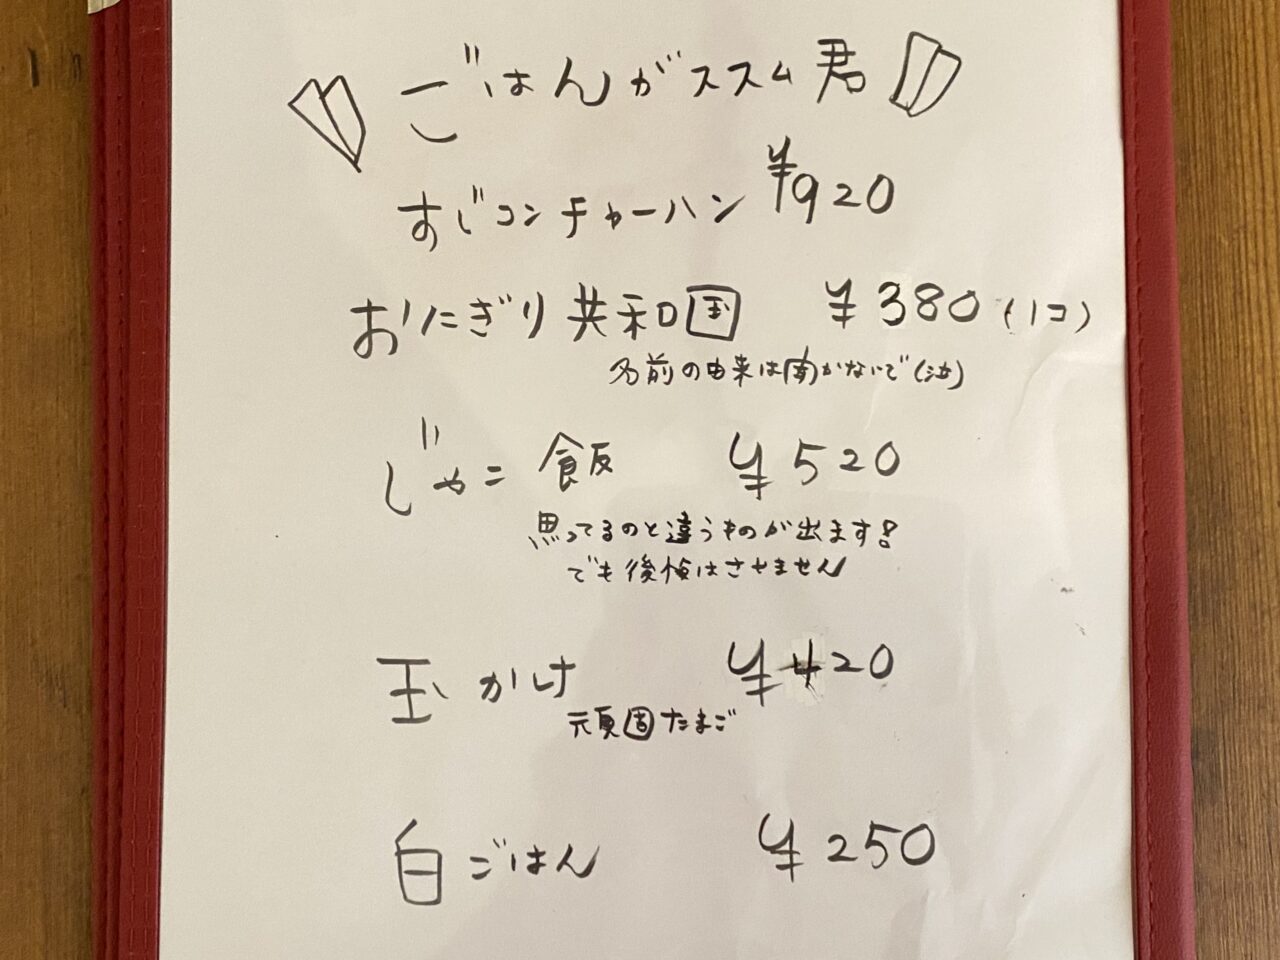 ごはんがススム君
すじコンチャーハン ¥920
おにぎり共和国 ¥380(1コ)
名前の由来は聞かないで(泣)
じゃこ飯 ¥520
思ってるのと違うものが出ます!
でも後悔はさせません
玉かけ ¥420
頑固たまご
白ごはん ¥250